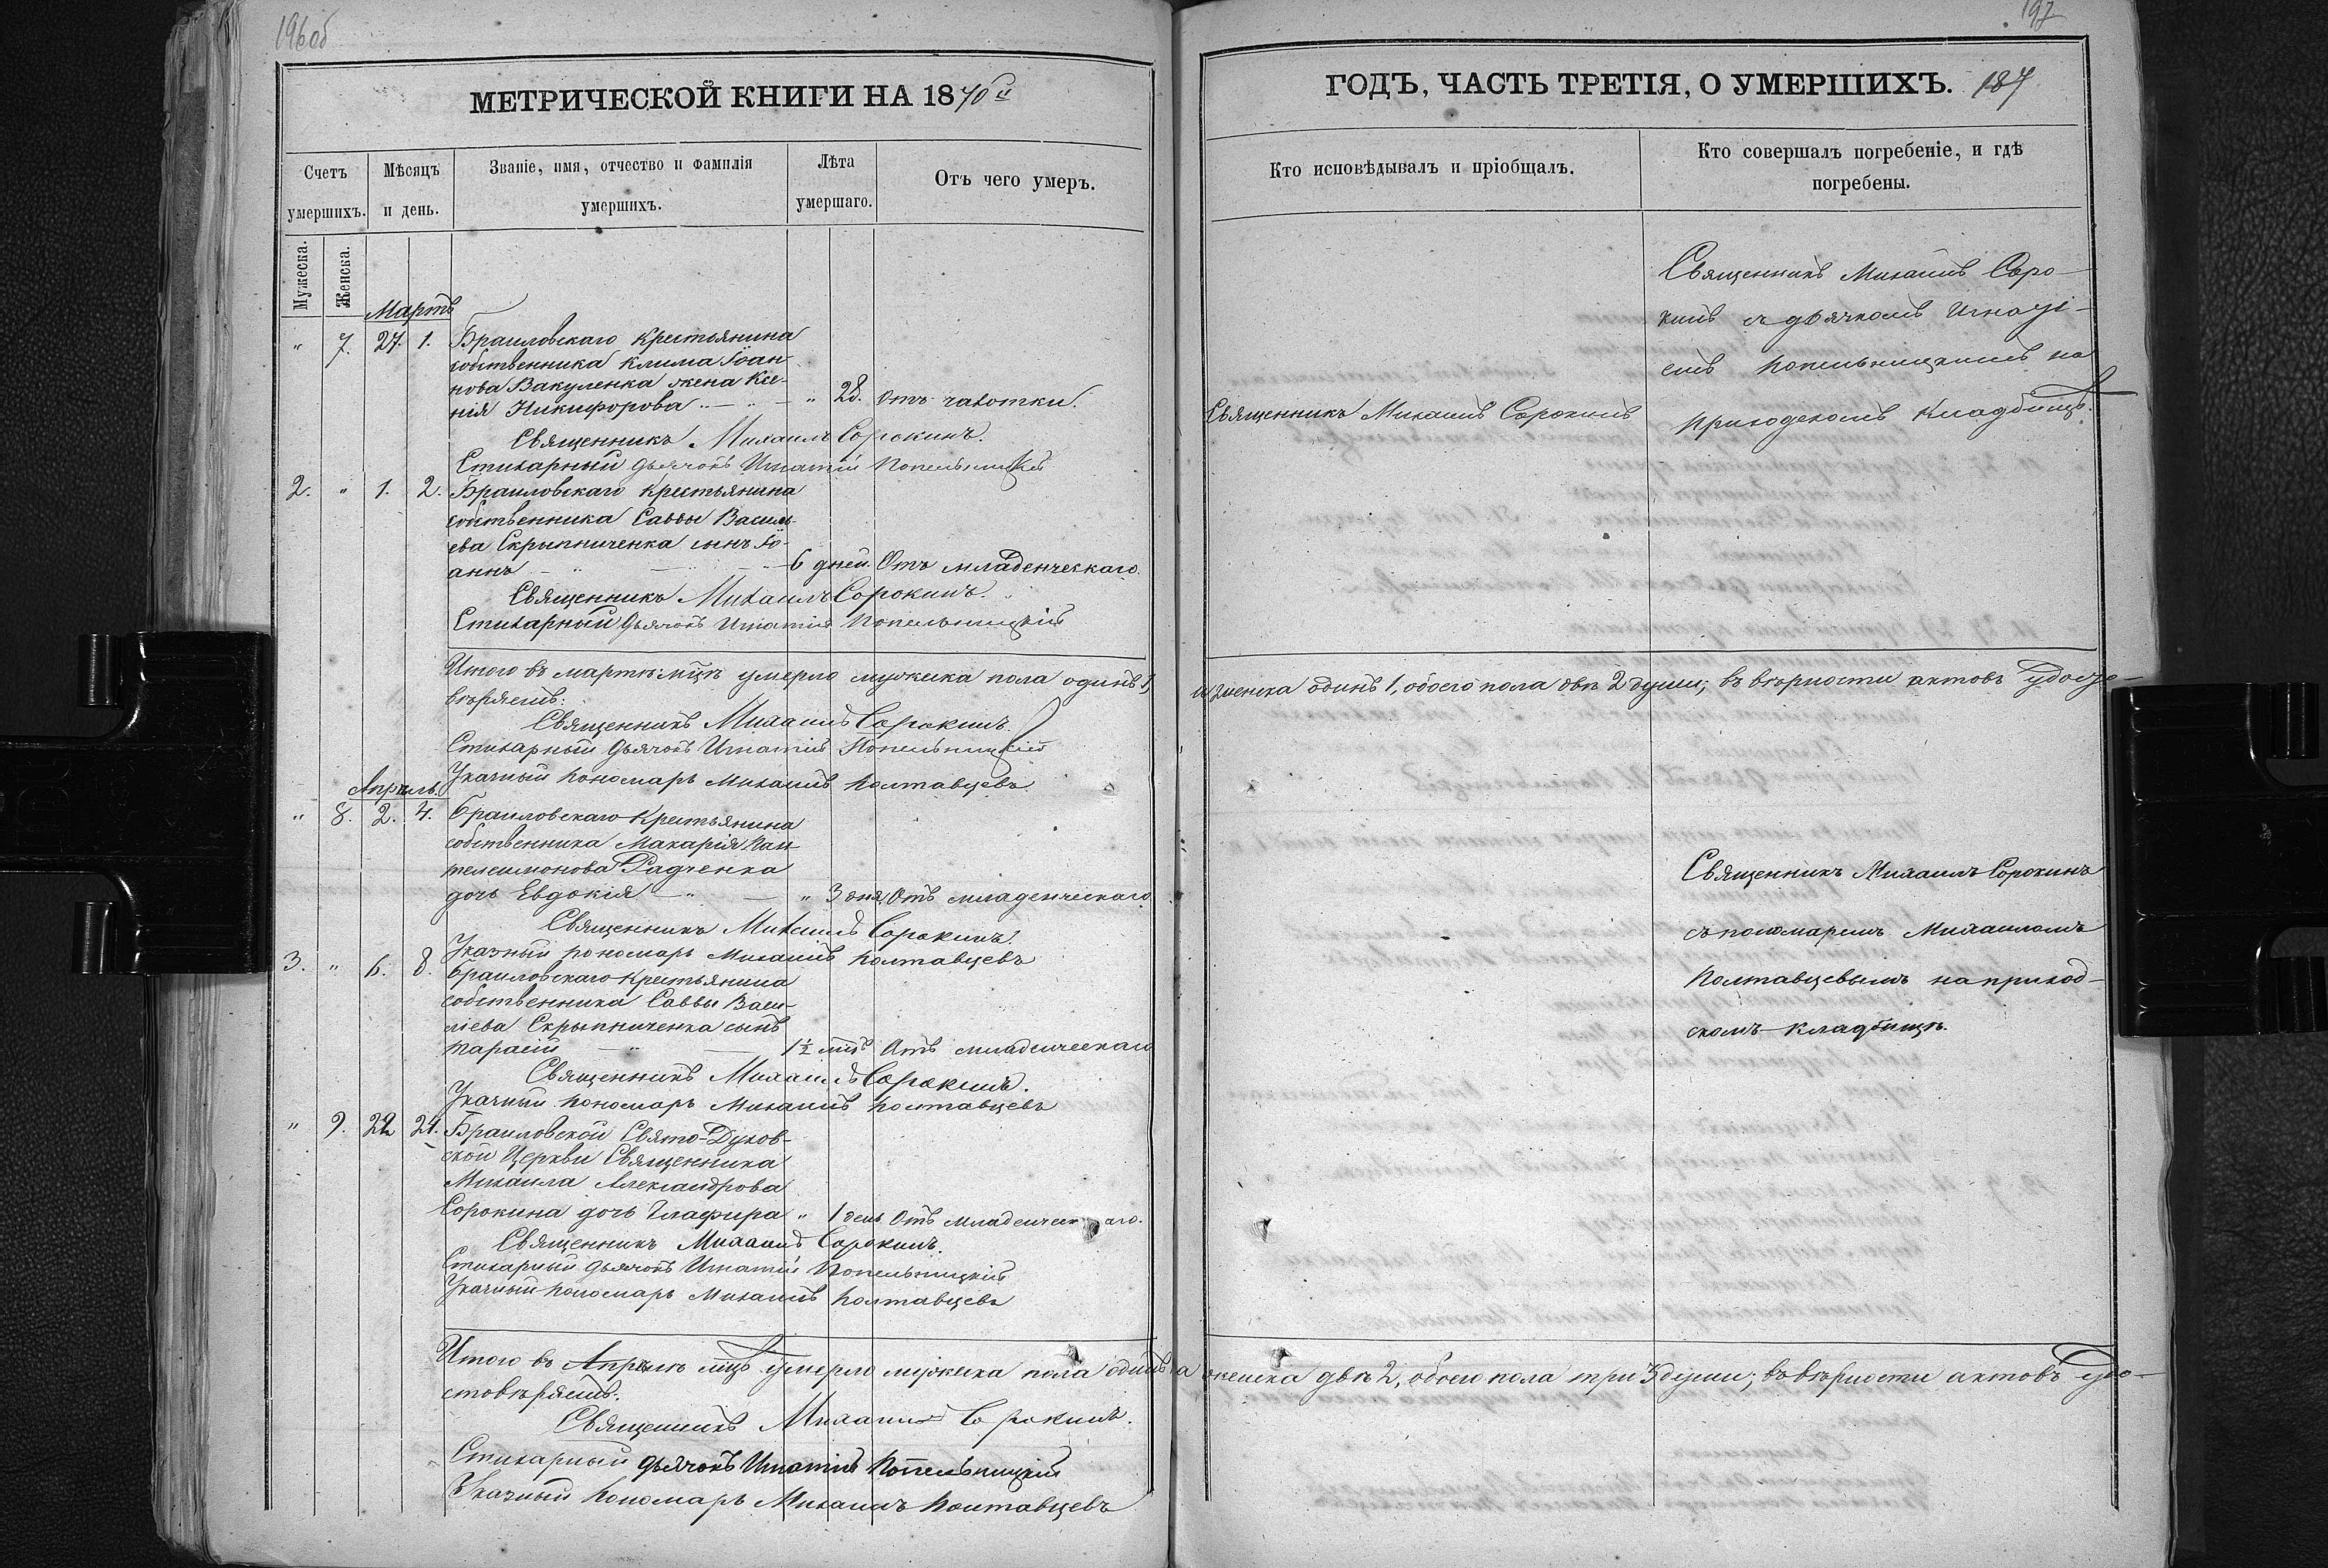 196об
МЕТРИЧЕСКОЙ КНИГИ НА 1870й
Счетъ умершихъ.
Мѣсяцъ и день.
Званіе, имя, отчество и фамилія умершихъ.
Лѣта умершаго.
Отъ чего умеръ.
Мужеска.
Женска.
Мартъ
" 7. 27. 1. Браиловскаго Крестьянина
собственника Клима Іоан-
нова Вакуленка жена Ксе-
нія Никифорова " 28. Отъ чахотки.
Священникъ Михаилъ Сорокинъ.
Стихарный дьячокъ Игнатій Попельницкій
2. " 1. 2. Браиловскаго Крестьянина
собственника Саввы Василь-
ева Скрыпниченка сынъ Іо-
аннъ 6 дней. Отъ младенческаго.
Священникъ Михаилъ Сорокинъ.
Стихарный дьячокъ Игнатій Попельницкій
Итого въ мартѣ мцѣ умерло мужеска пола одинъ 1,
вѣряемъ:
Священникъ Михаилъ Сорокинъ
Стихарный дьячокъ Игнатій Попельницкій
Указный пономарь Михаилъ Полтавцевъ
Апрѣль.
" 8. 2. 4. Браиловскаго Крестьянина
собственника Макарія Пан-
телеимонова Радченка
дочь Евдокія " 3 дня Отъ младенческаго
Священникъ Михаилъ Сорокинъ.
Указный пономарь Михаилъ Полтавцевъ
3. " 6. 8. Браиловскаго Крестьянина
собственника Саввы Васи-
ліева Скрыпниченка сынъ
Тарасій 1½ мцъ Отъ младенческаго
Священникъ Михаилъ Сорокинъ.
Указный пономарь Михаилъ Полтавцевъ
" 9. 22 24. Браиловской Свято-Духов-
ской Церкви Священника
Михаила Александрова
Сорокина дочь Глафира " 1 день Отъ младенческаго.
Священникъ Михаилъ Сорокинъ.
Стихарный дьячокъ Игнатій Попельницкій
Указный пономарь Михаилъ Полтавцевъ
Итого въ Апрѣлѣ мцѣ умерло мужеска пола одинъ а
стовѣряемъ.
Священникъ Михаилъ Сорокинъ.
Стихарный дьячокъ Игнатій Попельницкій
Указный пономарь Михаилъ Полтавцевъ
197
ГОДЪ, ЧАСТЬ ТРЕТІЯ, О УМЕРШИХЪ. 187
Кто исповѣдывалъ и пріобщалъ.
Кто совершалъ погребеніе, и гдѣ погребены.
Священникъ Михаилъ Сорокинъ
Священникъ Михаилъ Соро-
кинъ съ дьячкомъ Игнаті-
емъ Попельницкимъ на
приходскомъ Кладбищѣ.
и женска одинъ 1, обоего пола двѣ 2 души; въ вѣрности актовъ удосто-
Священникъ Михаилъ Сорокинъ
съ пономаремъ Михаиломъ
Полтавцевымъ на приход-
скомъ кладбищѣ.
женска двѣ 2, обоего пола три 3 души; въ вѣрности актовъ удо-